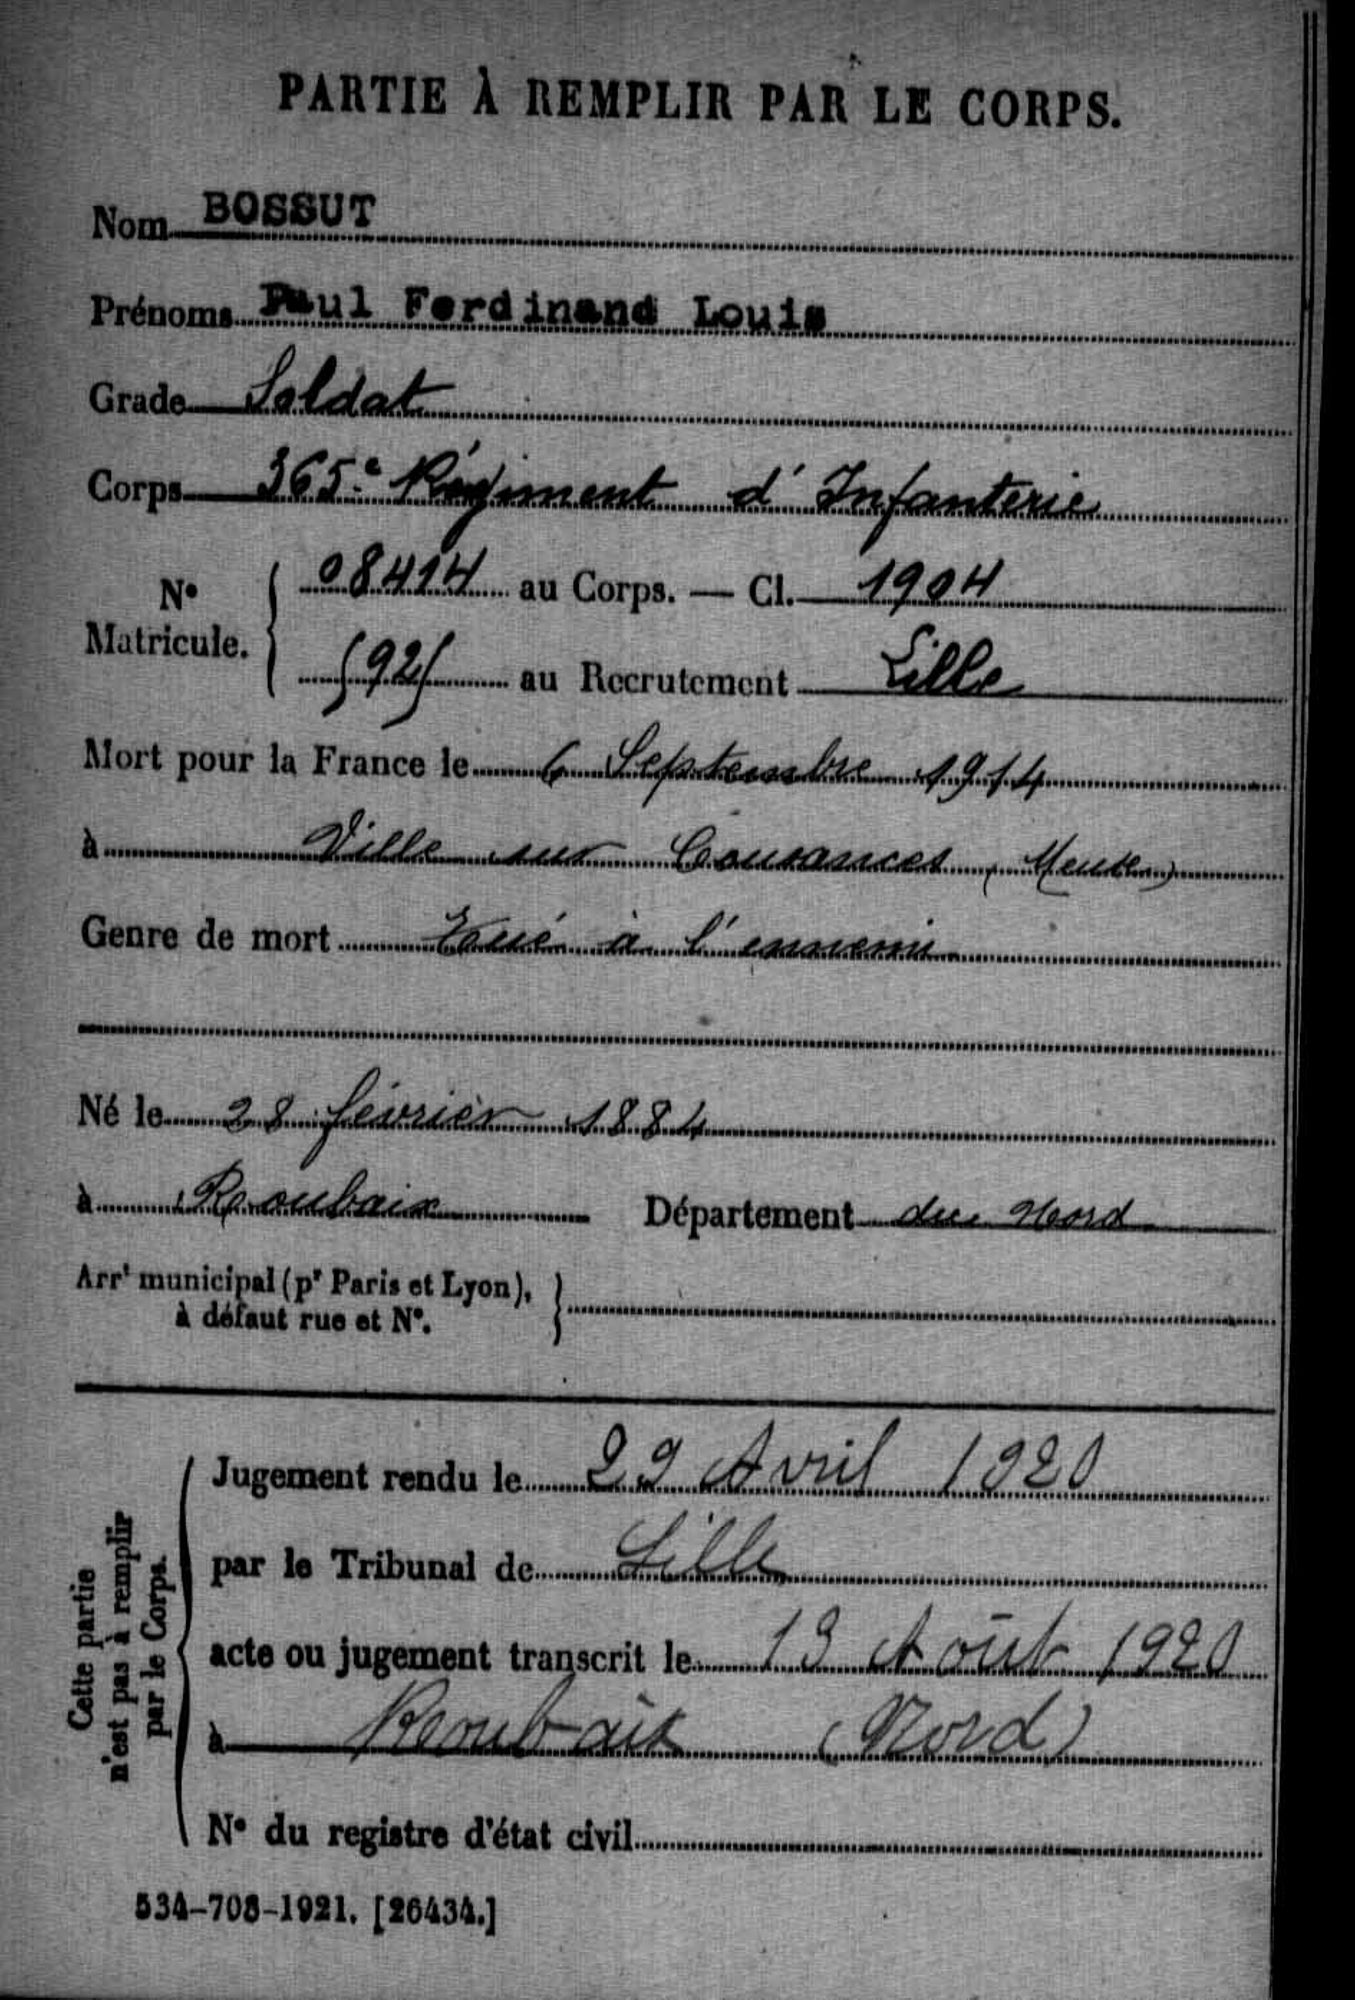 PARTIE À REMPLIR PAR LE CORPS.
Nom BOSSUT
Prénoms Paul Ferdinand Louis
Grade Soldat
Corps 365e Régiment d'Infanterie
No Matricule. { 08414 au Corps. — Cl. 1904
(92) au Recrutement Lille
Mort pour la France le 6 Septembre 1914
à Ville sur Cousances (Meuse)
Genre de mort Tué à l'ennemi
Né le 28 février 1884
à Roubaix Département du Nord
Arrt municipal (pr Paris et Lyon), }
à défaut rue et No.
Cette partie
n'est pas à remplir
par le Corps.
Jugement rendu le 29 Avril 1920
par le Tribunal de Lille
acte ou jugement transcrit le 13 Août 1920
à Roubaix (Nord)
No du registre d'état civil
534-708-1921. [26434.]